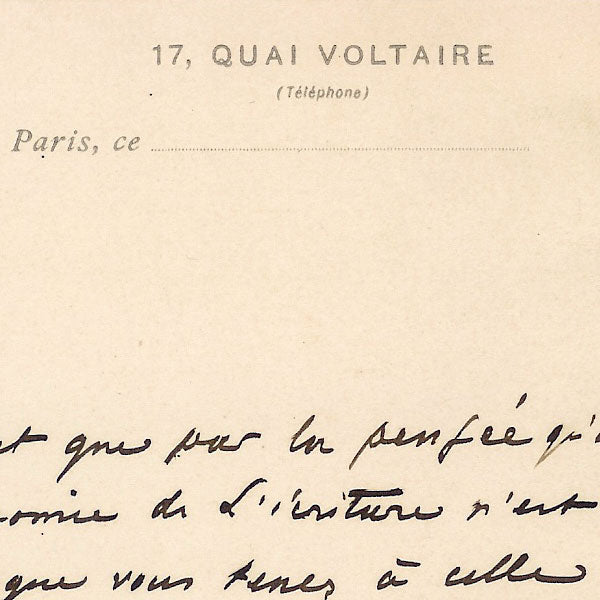 17, QUAI VOLTAIRE
(Téléphone)
Paris, ce
que par la pensée qu'
de l'écriture n'est
que vous tenez à celle